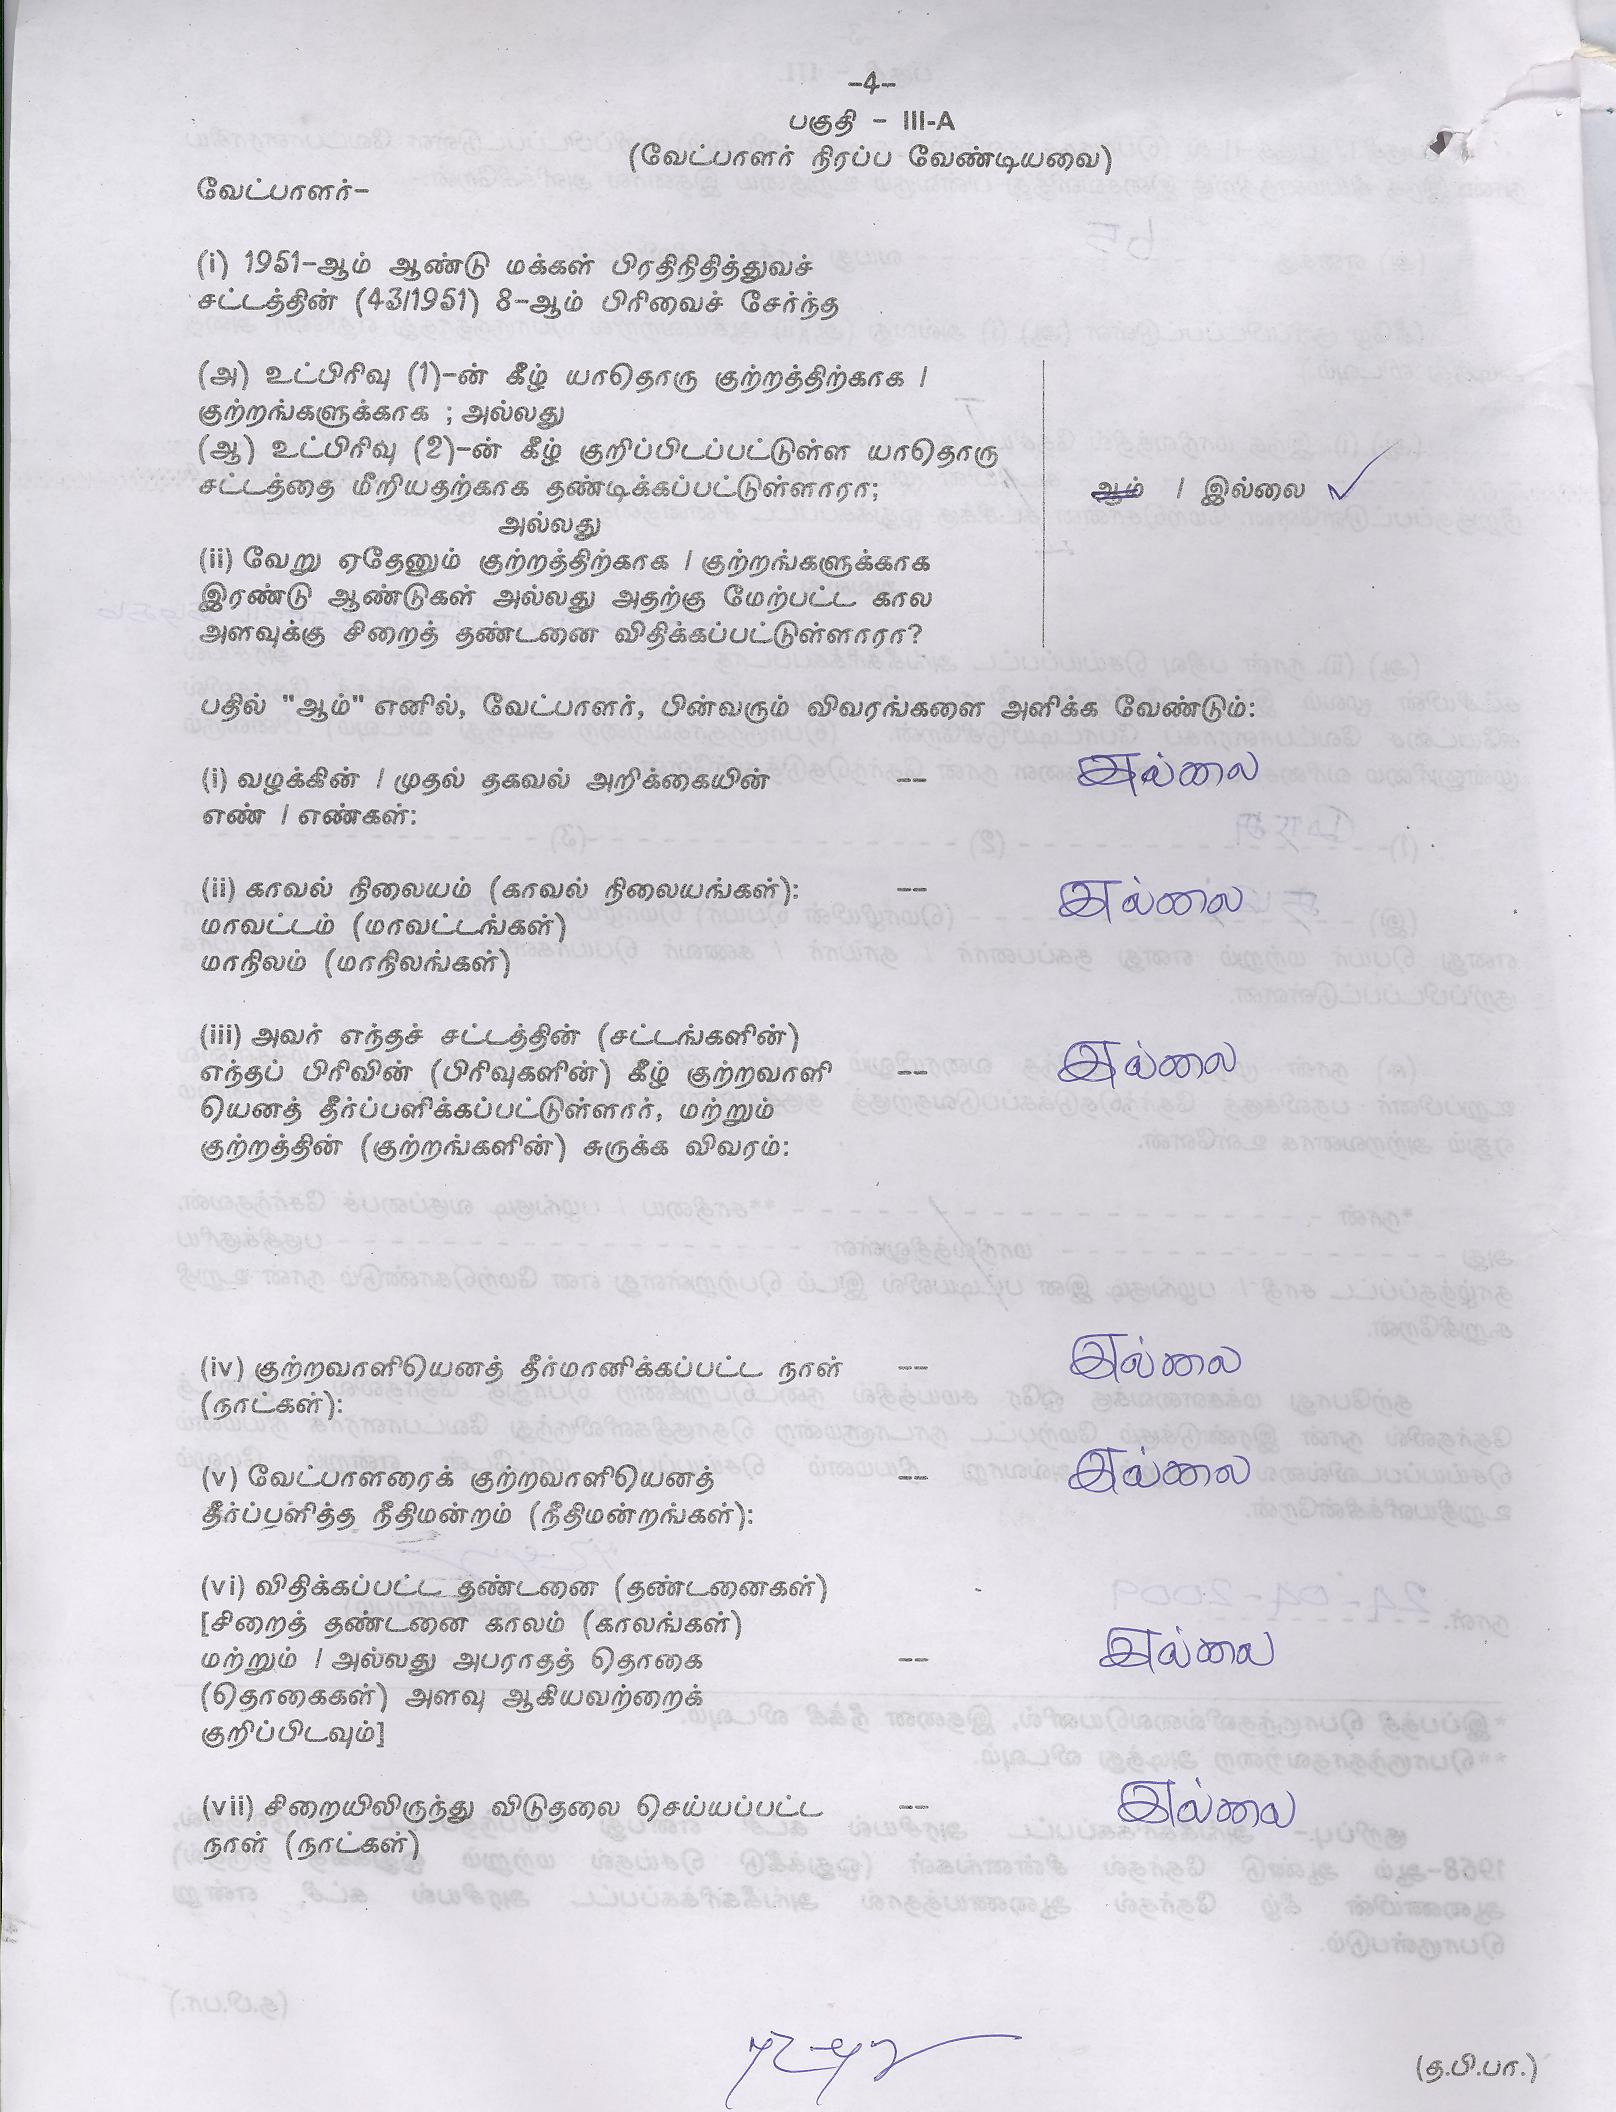 -4-
பகுதி - III-A
(வேட்பாளர் நிரப்ப வேண்டியவை)
வேட்பாளர்-
(i) 1951-ஆம் ஆண்டு மக்கள் பிரதிநிதித்துவச்
சட்டத்தின் (43/1951) 8-ஆம் பிரிவைச் சேர்ந்த
(அ) உட்பிரிவு (1)-ன் கீழ் யாதொரு குற்றத்திற்காக /
குற்றங்களுக்காக ; அல்லது
(ஆ) உட்பிரிவு (2)-ன் கீழ் குறிப்பிடப்பட்டுள்ள யாதொரு
சட்டத்தை மீறியதற்காக தண்டிக்கப்பட்டுள்ளாரா; ஆம் / இல்லை ✓
அல்லது
(ii) வேறு ஏதேனும் குற்றத்திற்காக / குற்றங்களுக்காக
இரண்டு ஆண்டுகள் அல்லது அதற்கு மேற்பட்ட கால
அளவுக்கு சிறைத் தண்டனை விதிக்கப்பட்டுள்ளாரா?
பதில் "ஆம்" எனில், வேட்பாளர், பின்வரும் விவரங்களை அளிக்க வேண்டும்:
(i) வழக்கின் / முதல் தகவல் அறிக்கையின் -- இல்லை
எண் / எண்கள்:
(ii) காவல் நிலையம் (காவல் நிலையங்கள்): -- இல்லை
மாவட்டம் (மாவட்டங்கள்)
மாநிலம் (மாநிலங்கள்)
(iii) அவர் எந்தச் சட்டத்தின் (சட்டங்களின்)
எந்தப் பிரிவின் (பிரிவுகளின்) கீழ் குற்றவாளி -- இல்லை
யெனத் தீர்ப்பளிக்கப்பட்டுள்ளார், மற்றும்
குற்றத்தின் (குற்றங்களின்) சுருக்க விவரம்:
(iv) குற்றவாளியெனத் தீர்மானிக்கப்பட்ட நாள் -- இல்லை
(நாட்கள்):
(v) வேட்பாளரைக் குற்றவாளியெனத் -- இல்லை
தீர்ப்பளித்த நீதிமன்றம் (நீதிமன்றங்கள்):
(vi) விதிக்கப்பட்ட தண்டனை (தண்டனைகள்)
[சிறைத் தண்டனை காலம் (காலங்கள்)
மற்றும் / அல்லது அபராதத் தொகை -- இல்லை
(தொகைகள்) அளவு ஆகியவற்றைக்
குறிப்பிடவும்]
(vii) சிறையிலிருந்து விடுதலை செய்யப்பட்ட -- இல்லை
நாள் (நாட்கள்)
(த.பி.பா.)